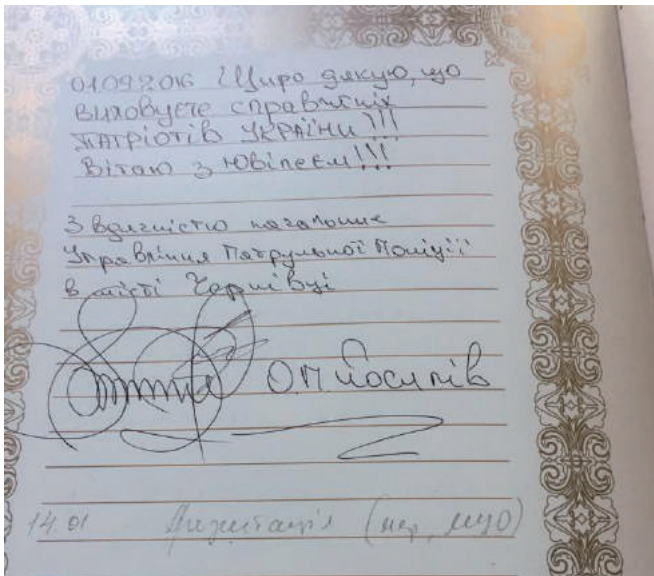 01092016 Щиро дякую, що
виховуєте справжніх
ПАТРІОТІВ УКРАЇНИ!!!
Вітаю з ювілеєм!!!
З вдячністю начальник
Управління Патрульної Поліції
в місті Чернівці
О.П Йосипів
14.01 Презентація